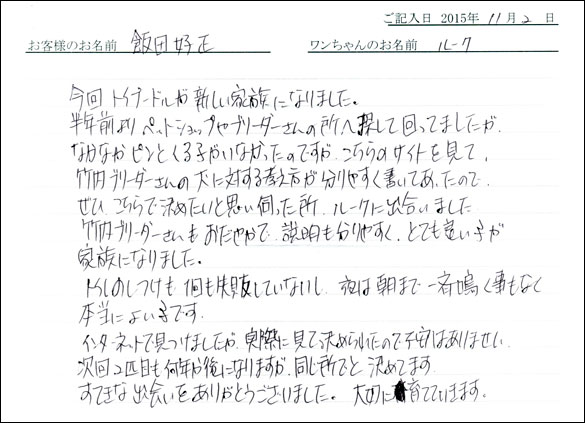 ご記入日 2015年 11月 2日
お客様のお名前 飯田好正 ワンちゃんのお名前 ルーク
今回トイプードルが新しい家族になりました。
半年前よりペットショップやブリーダーさんの所へ探して回ってましたが、
なかなかピンとくる子がいなかったのですが、こちらのサイトを見て、
竹内ブリーダーさんの犬に対する考え方が分りやすく書いてあったので、
ぜひ、こちらで決めたいと思い伺った所、ルークに出会いました
竹内ブリーダーさんもおだやかで、説明も分りやすく、とても良い子が
家族になりました。
トイレのしつけも1回も失敗していないし、夜は朝まで一斉鳴く事もなく
本当によい子です。
インターネットで見つけましたが、実際に見て決められたので不安はありません。
次回2匹目も何年か後になりますが、同じ所でと決めてます
すてきな出会いをありがとうございました。大切に育てていきます。